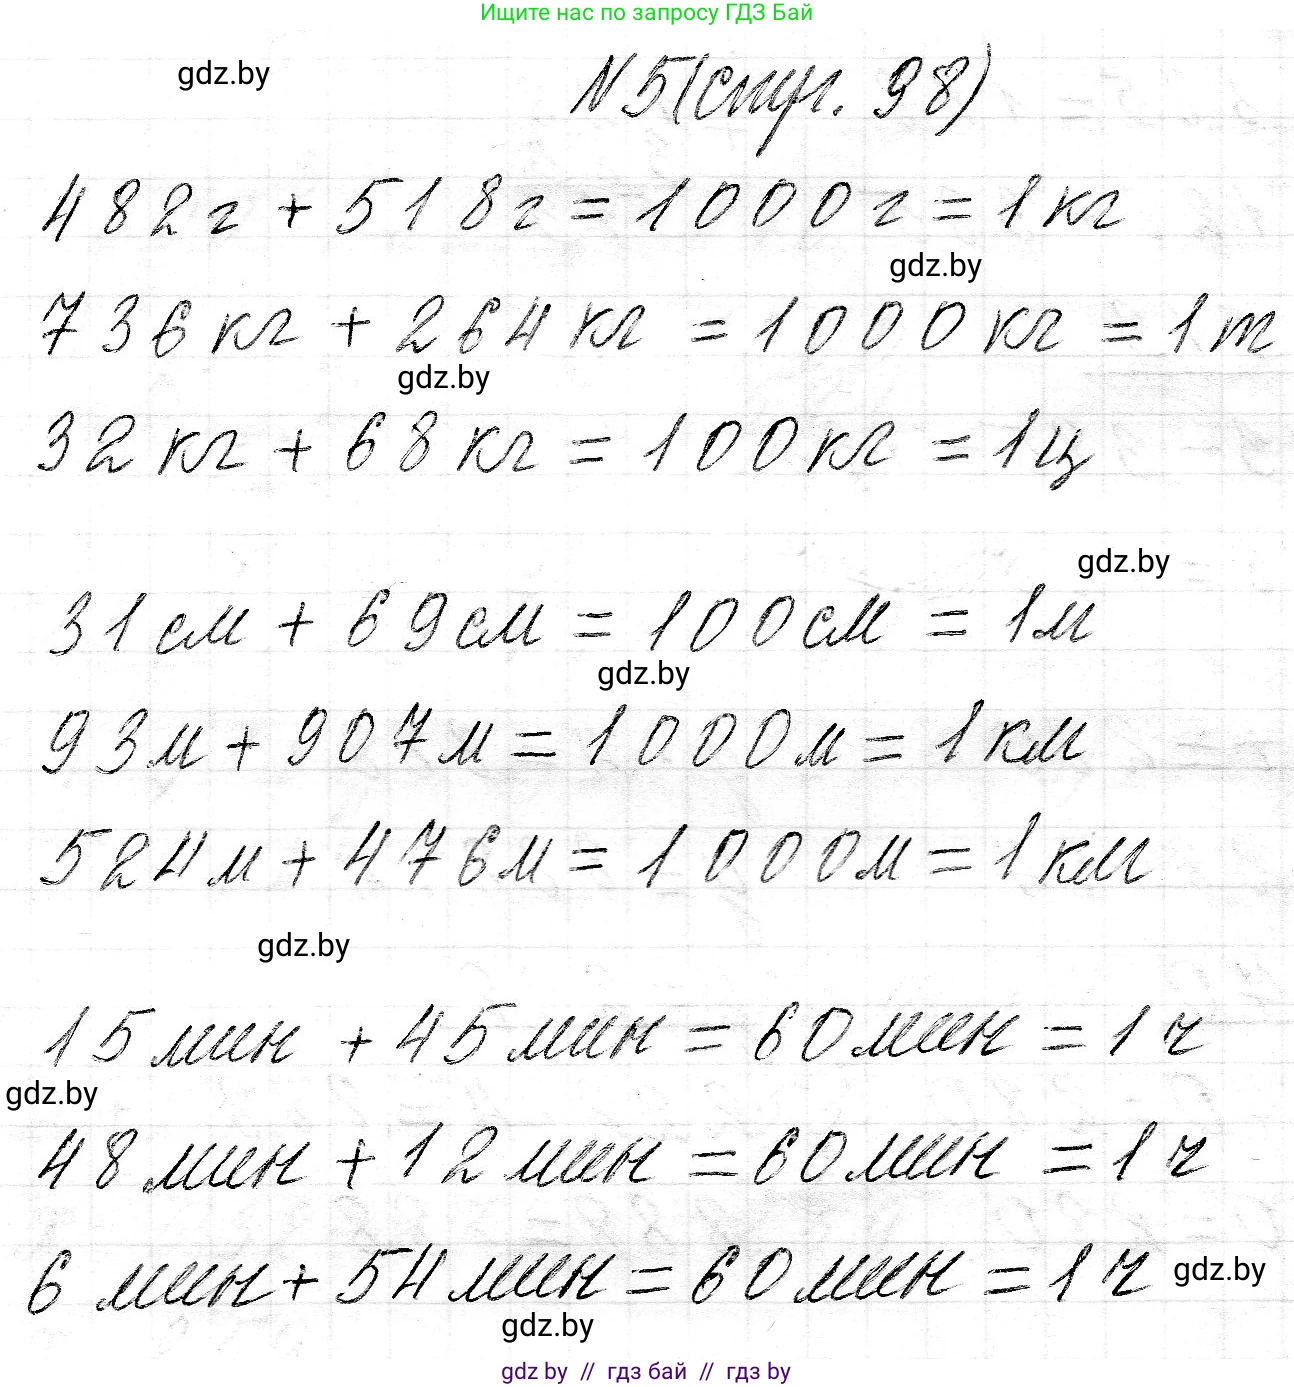 Ищите нас по запросу ГДЗ Бай
gdz.by
N5(стр. 98)
482г + 518г = 1000г = 1кг
gdz.by
736кг + 264кг = 1000кг = 1т
gdz.by
32кг + 68кг = 100кг = 1ц
gdz.by
31см + 69см = 100см = 1м
gdz.by
93м + 907м = 1000м = 1км
524м + 476м = 1000м = 1км
gdz.by
15мин + 45мин = 60мин = 1ч
gdz.by
48мин + 12мин = 60мин = 1ч
6мин + 54мин = 60мин = 1ч
gdz.by
gdz.by
gdz by // гдз бай // гдз by